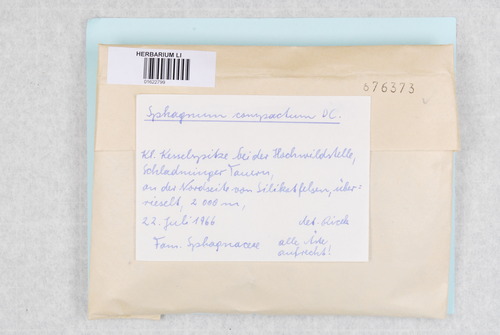 HERBARIUM LI
01622799
676373
Sphagnum compactum DC.
Kl. Kesselspitze bei der Hochwildstelle,
Schladminger Tauern,
an der Nordseite von Silikatfelsen, über-
rieselt, 2 000 m,
22. Juli 1966 det. Ricek
Fam. Sphagnaceae alle Äste
aufrecht!